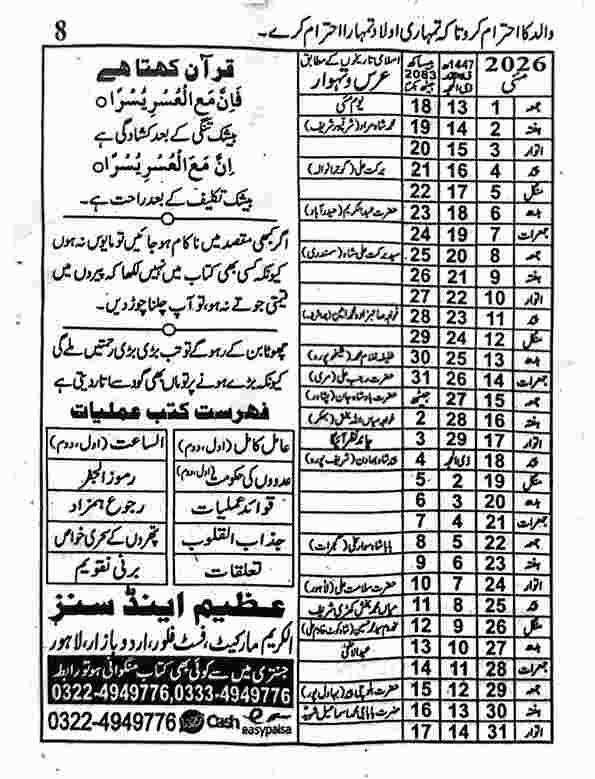 والد کا احترام کرو تا کہ تمہاری اولاد تمہارا احترام کرے۔ 8
2026 مئی
1447ھ ذیقعد ذی الحجہ
بیساکھ 2083 جیٹھ
اسلامی تاریخوں کے مطابق عرس و تہوار
جمعہ 1 13 18 یوم مئی
ہفتہ 2 14 19 محمد شاہ مراد (شرقپور شریف)
اتوار 3 15 20
پیر 4 16 21 برکت علی (گوجرانوالہ)
منگل 5 17 22
بدھ 6 18 23 حضرت عبدالکریم (حیدرآباد)
جمعرات 7 19 24
جمعہ 8 20 25 سید برکت علی شاہ (سمندری)
ہفتہ 9 21 26
اتوار 10 22 27
پیر 11 23 28 خواجہ صاحبزادہ محمد امین
منگل 12 24 29
بدھ 13 25 30 خلیفہ غلام محمد (شیخوپورہ)
جمعرات 14 26 31 حضرت رجب علی (مری)
جمعہ 15 27 جیٹھ حضرت بادشاہ جان (پشاور)
ہفتہ 16 28 2 خواجہ عباس اللہ بخش (بھکر)
اتوار 17 29 3 چاند نظر آیگا
پیر 18 ذی الحجہ 4 پیر شاہ بہاون (شریف پورہ)
منگل 19 2 5
بدھ 20 3 6
جمعرات 21 4 7
جمعہ 22 5 8 بابا شاہ سوار علی (گجرات)
ہفتہ 23 6 9
اتوار 24 7 10 حضرت سلامت علی (لاہور)
پیر 25 8 11 میاں محمد بخش کھڑی شریف
منگل 26 9 12 مخدوم سید محمد حسین
بدھ 27 10 13 عیدالاضحیٰ
جمعرات 28 11 14
جمعہ 29 12 15 حضرت بلوچی پیر (بہاولپور)
ہفتہ 30 13 16 حضرت بابا جی محمد اسماعیل شہید
اتوار 31 14 17
قرآن کہتا ھے
فَاِنَّ مَعَ الْعُسْرِ يُسْرًا
بیشک تنگی کے بعد کشادگی ہے
اِنَّ مَعَ الْعُسْرِ يُسْرًا
بیشک تکلیف کے بعد راحت ہے۔
اگر کبھی مقصد میں ناکام ہو جائیں تو مایوس نہ ہوں
کیونکہ کسی بھی کتاب میں نہیں لکھا کہ پیروں میں
قیمتی جوتے نہ ہو، تو آپ چلنا چھوڑ دیں۔
چھوٹا بن کے رہو گے تو تب بڑی بڑی رحمتیں ملے گی
کیونکہ بڑے ہونے پر تو ماں بھی گود سے اتار دیتی ہے
فہرست کتب عملیات
عامل کامل (اول، دوم) الساعت (اول، دوم)
عددوں کی حکومت (اول، دوم) رموز الجفر
قوائد عملیات رجوع ہمزاد
جذاب القلوب پتھروں کے سحری خواص
تعلقات برنی تقویم
عظیم اینڈ سنز
الکریم مارکیٹ، فسٹ فلور، اردو بازار، لاہور
جنتری میں سے کوئی بھی کتاب منگوانی ہو تو رابطہ
0322-4949776,0333-4949776
0322-4949776 Cash easypaisa